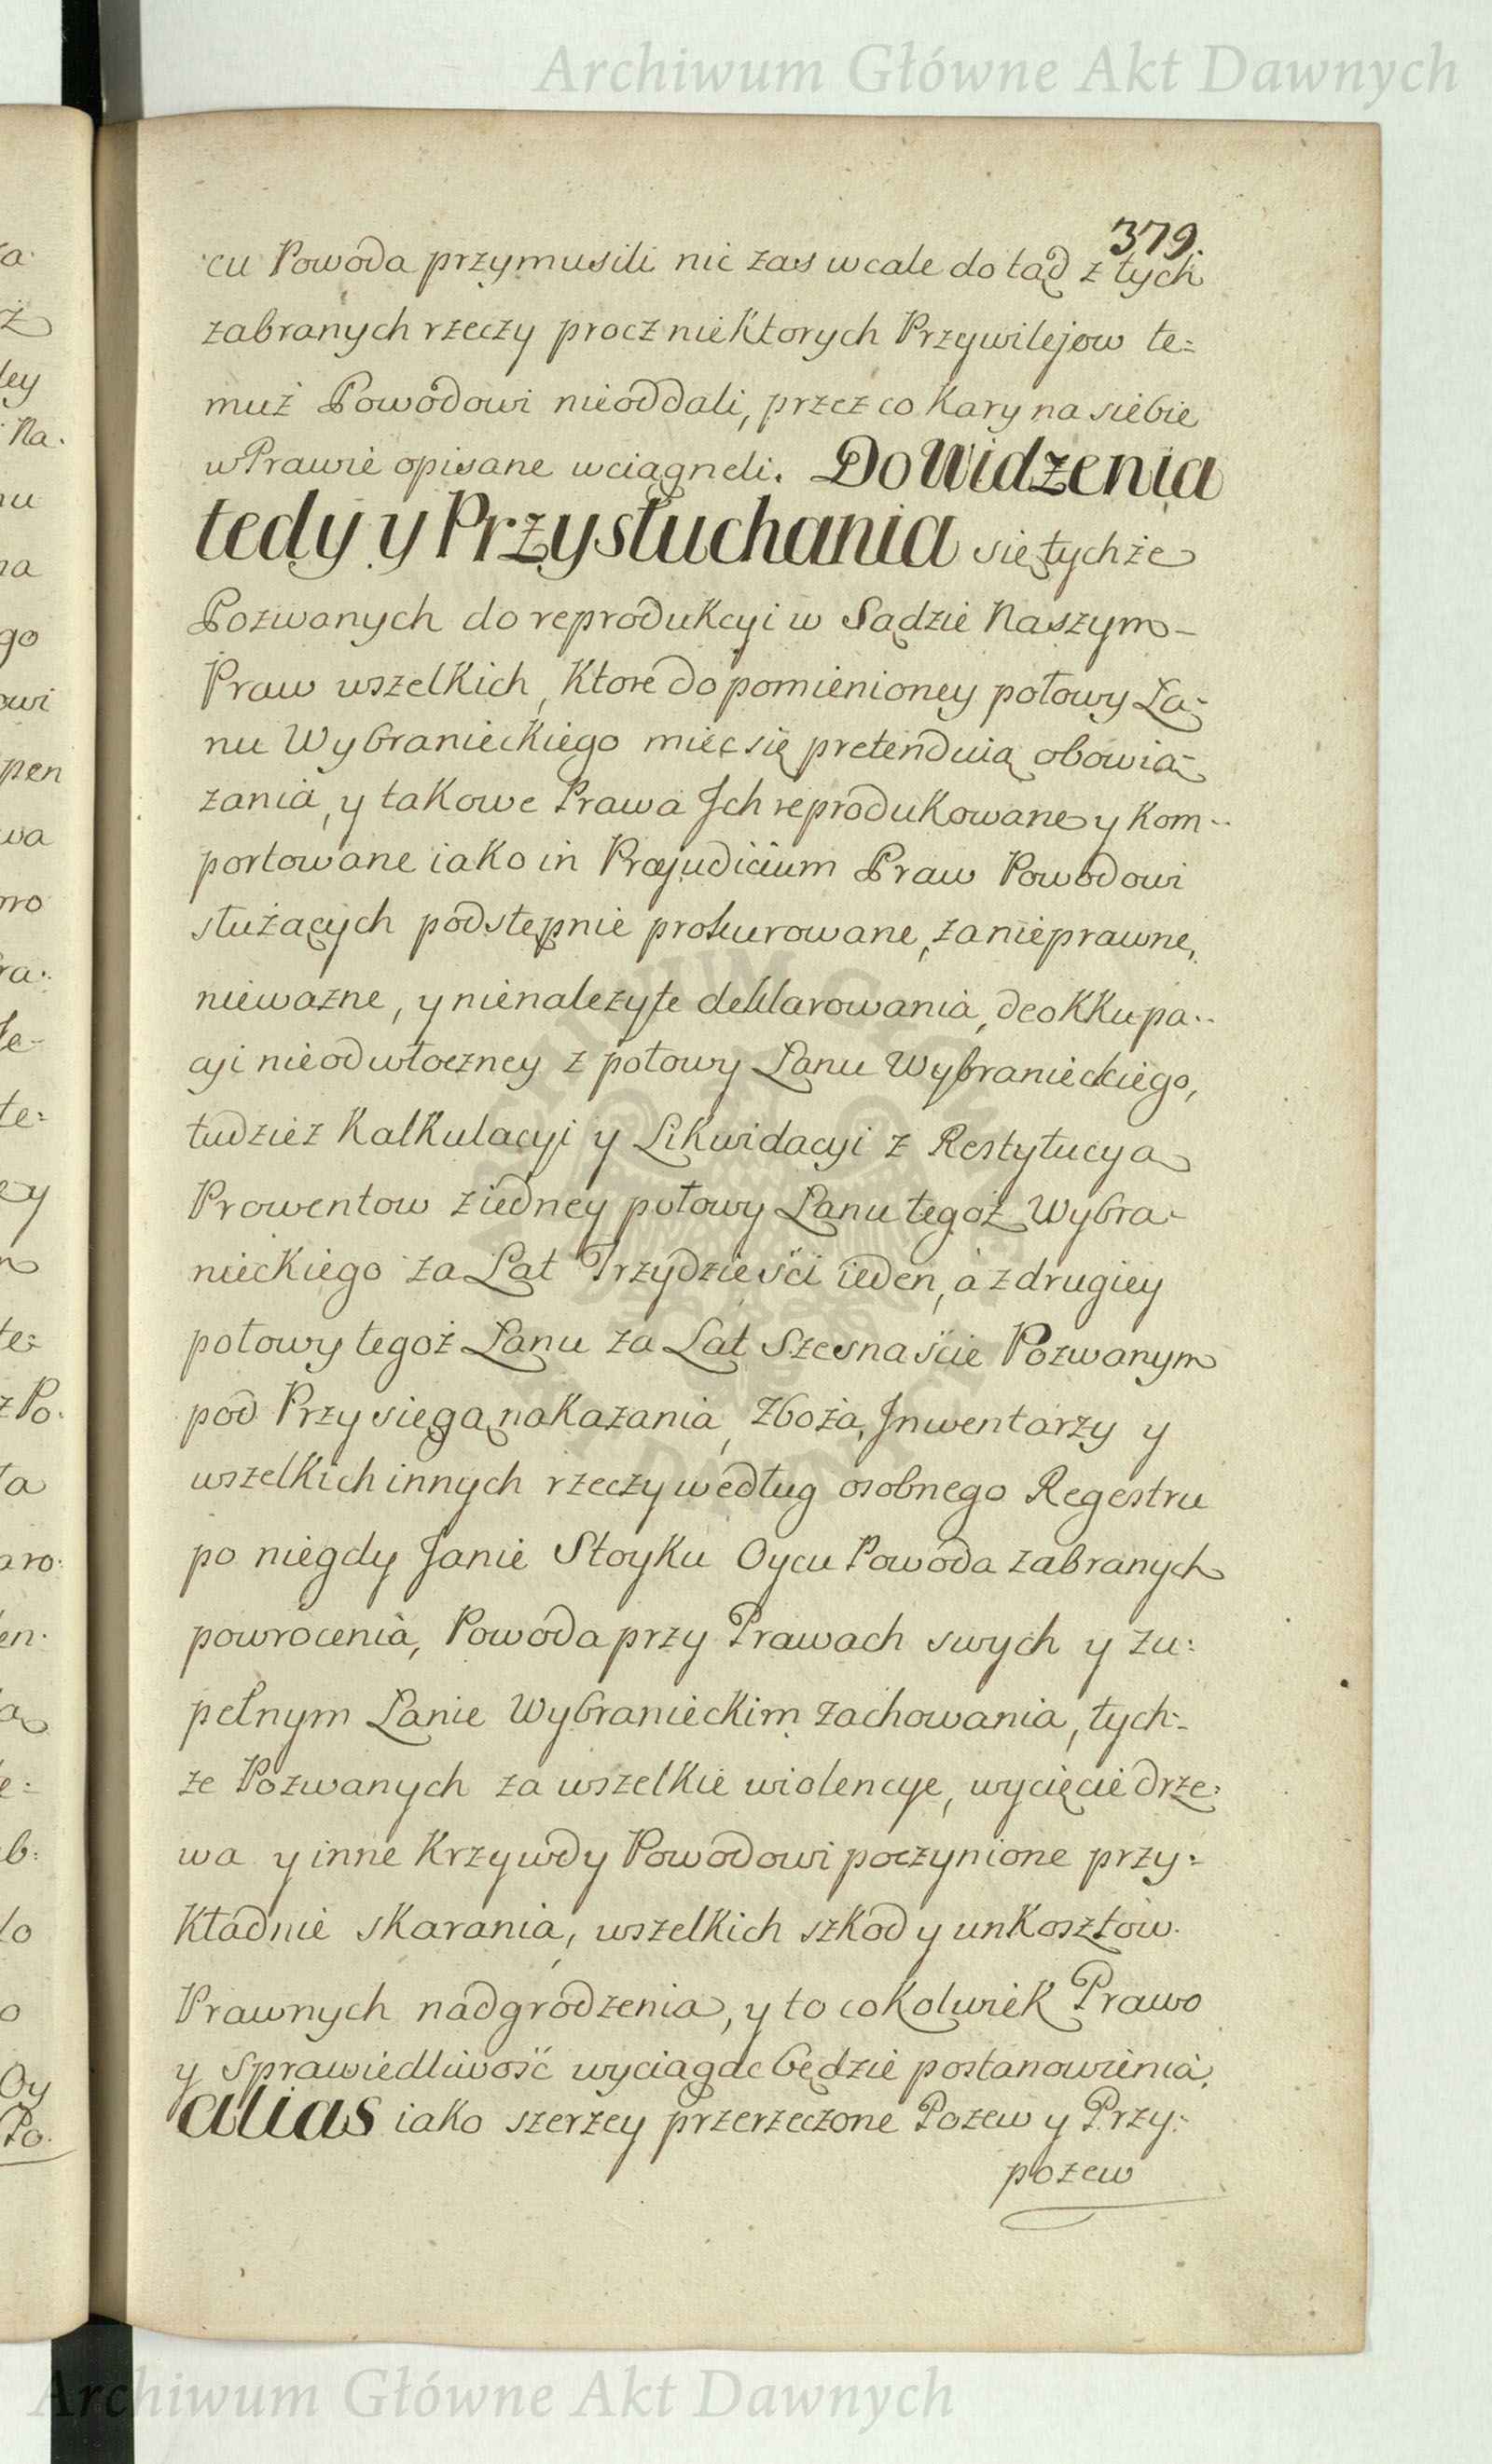 Archiwum Główne Akt Dawnych
379.
cu Powoda przymusili nic zas wcale do tąd z tych
zabranych rzeczy procz niektorych Przywilejow te=
muż Powodowi nieoddali, przez co kary na siebie
w Prawie opisane wciągneli. Do Widzenia
tedy y Przysłuchania się tychże
Pozwanych do reprodukcyi w Sądzie Naszym
Praw wszelkich, ktore do pomienioney połowy Ła=
nu Wybranieckiego miec się pretenduią obowią=
zania, y takowe Prawa Jch reprodukowane y kom=
portowane iako in Præjudicium Praw Powodowi
służących podstępnie prokurowane, za nieprawne,
nieważne, y nienależyte deklarowania, deokkupa=
cyi nieodwłoczney z połowy Łanu Wybranieckiego,
tudziez Kalkulacyi y Likwidacyi z Restytucyą
Prowentow z iedney połowy Łanu tegoż Wybra=
nieckiego za Lat Trzydzieści ieden, a z drugiey
połowy tegoż Łanu za Lat Szesnaście Pozwanym
pod Przysięgą nakazania, Zboża, Jnwentarzy y
wszelkich innych rzeczy według osobnego Regestru
po niegdy Janie Stoyku Oycu Powoda zabranych
powrocenia, Powoda przy Prawach swych y zu=
pełnym Łanie Wybranieckim zachowania, tych=
że Pozwanych za wszelkie wiolencye, wycięcie drze=
wa y inne krzywdy Powodowi poczynione przy=
kładnie skarania, wszelkich szkod y unkosztow
Prawnych nadgrodzenia, y to cokolwiek Prawo
y Sprawiedliwość wyciągac będzie postanowienia.
alias iako szerzey przerzeczone Pozew y Przy=
pozew
Archiwum Główne Akt Dawnych